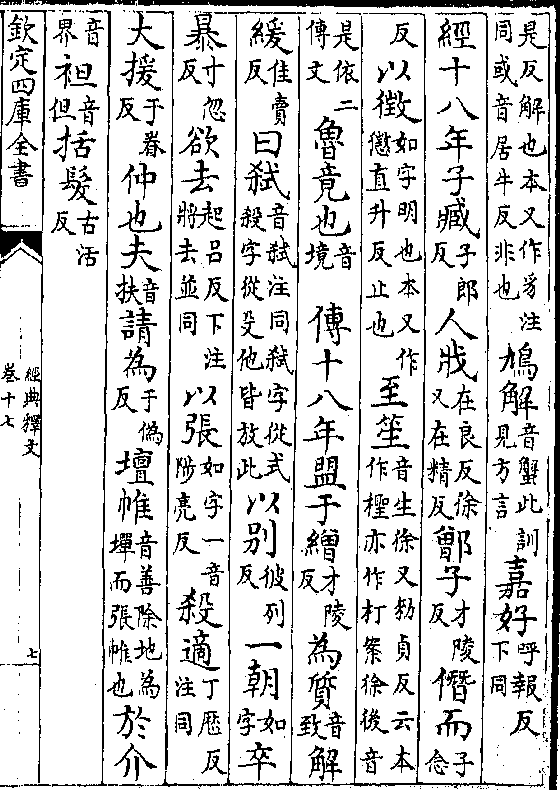 是反解也本又作豸注同或音居牛反非也鳩解音蟹此訓見方言嘉好呼報反下同
經十八年子臧子郎反人戕在良反徐又在精反鄫子才陵反僭而子念
反以徵如字明也本又作懲直升反止也至笙音生徐又勑貞反云本作檉亦作朾案徐後音
是依二傳文魯竟也音境傳十八年盟于繒才陵反為質音致解
緩佳賣反曰弑音弑注同弑字從式殺字從殳他皆放此以別彼列反一朝如字卒
暴寸忽反欲去起呂反下注將去並同以張如字一音陟亮反殺適丁歷反注同
大援于眷反仲也夫音扶請為于偽反壇帷音善除地為墠而張帷也於介
音界袒音但括髮古活反
欽定四庫全書
經典釋文
卷十七
七